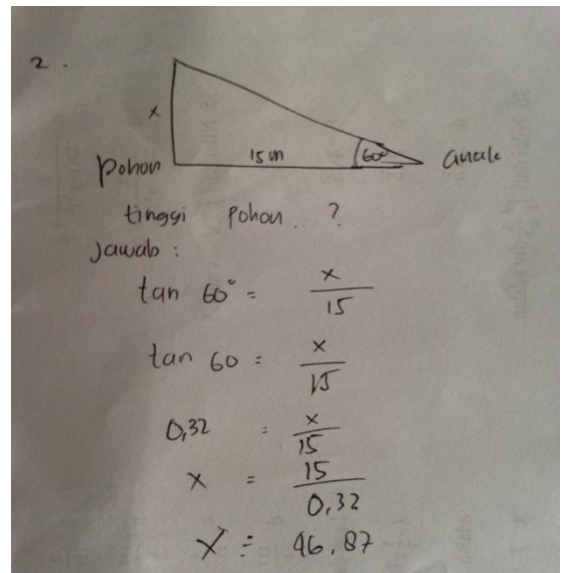 2.
x
15 m
60°
Pohon
anak
tinggi Pohon . . ?
Jawab :
tan 60° = x/15
tan 60 = x/15
0,32 = x/15
x = 15/0,32
x = 46.87